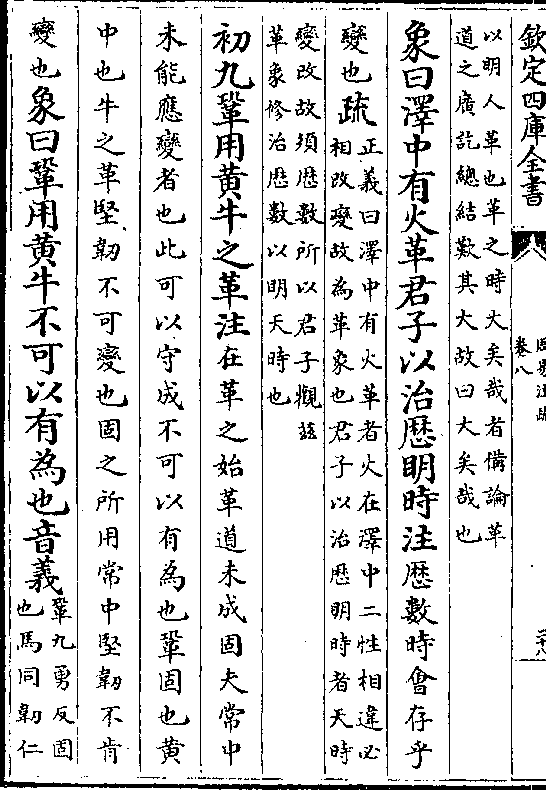 欽定四庫全書
卷八
以明人革也革之時大矣哉者備論革
道之廣訖總結歎其大故曰大矣哉也
象曰澤中有火革君子以治歴明時注歴數時會存乎
變也疏
正義曰澤中有火革者火在澤中二性相違必
相改變故為革象也君子以治歴明時者天時
變改故須歴數所以君子觀兹
革象修治歴數以明天時也
初九鞏用黄牛之革注在革之始革道未成固夫常中
未能應變者也此可以守成不可以有為也鞏固也黄
中也牛之革堅韌不可變也固之所用常中堅韌不肯
變也象曰鞏用黄牛不可以有為也音義
鞏九勇反固
也馬同韌仁